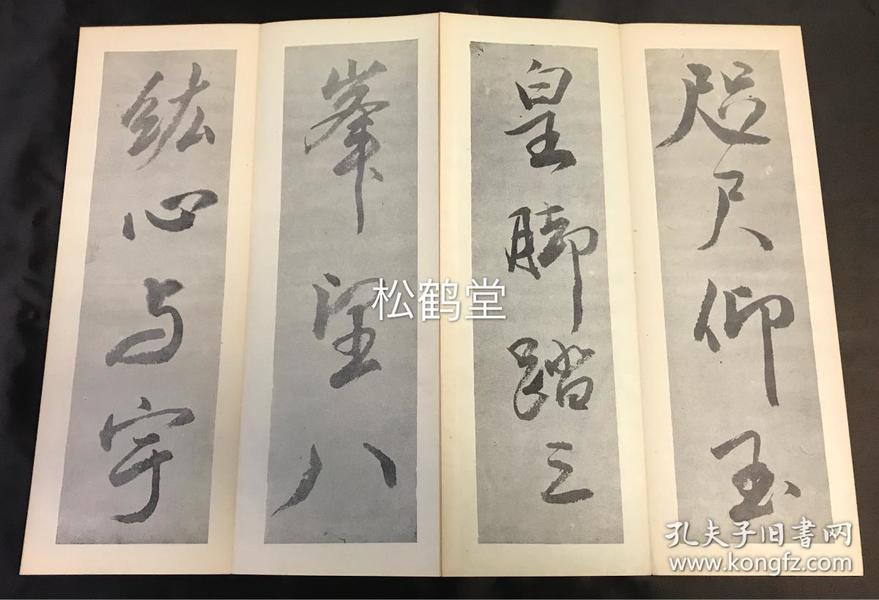 咫尺仰玉
皇脚踏三
峯望八
紘心与宇
松鹤堂
孔夫子旧书网
www.kongfz.com